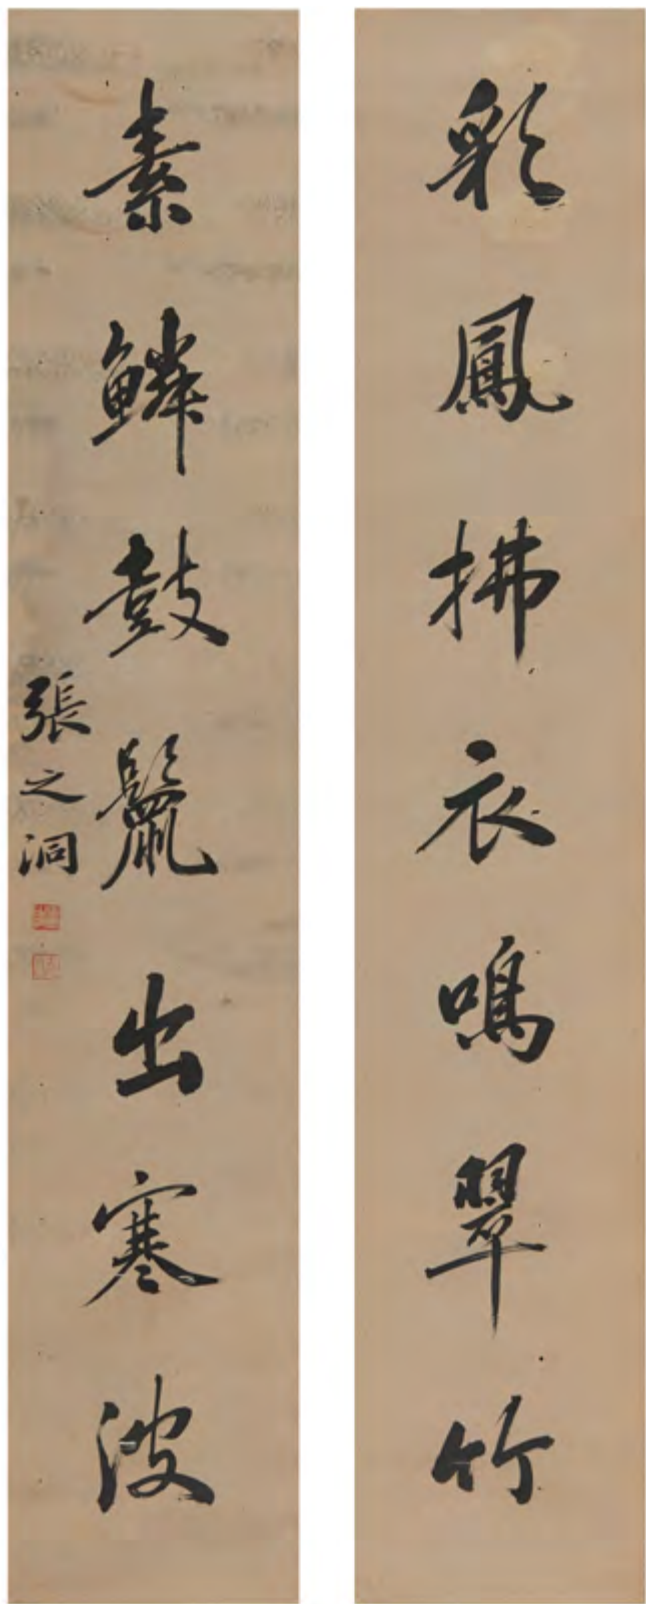 彩鳳拂衣鳴翠竹
素鱗鼓鬣出寒波
張之洞